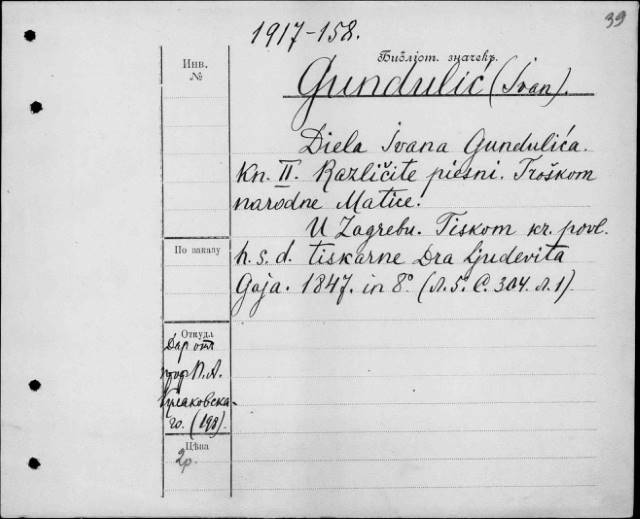 39
1917-158.
Инв.
№
Библіот. значекъ.
Gundulić (Ivan).
Diela Ivana Gundulića.
Kn. II. Različite piesni. Troškom
narodne Matice.
U Zagrebu. Tiskom kr. povl.
По заказу
h. s. d. tiskarne Dra Ljudevita
Gaja. 1847. in 8° (л. 5. С. 304. л. 1)
Откуда
Даръ отъ
проф П. А.
Кулаковска-
го. (198).
Цѣна
2р.